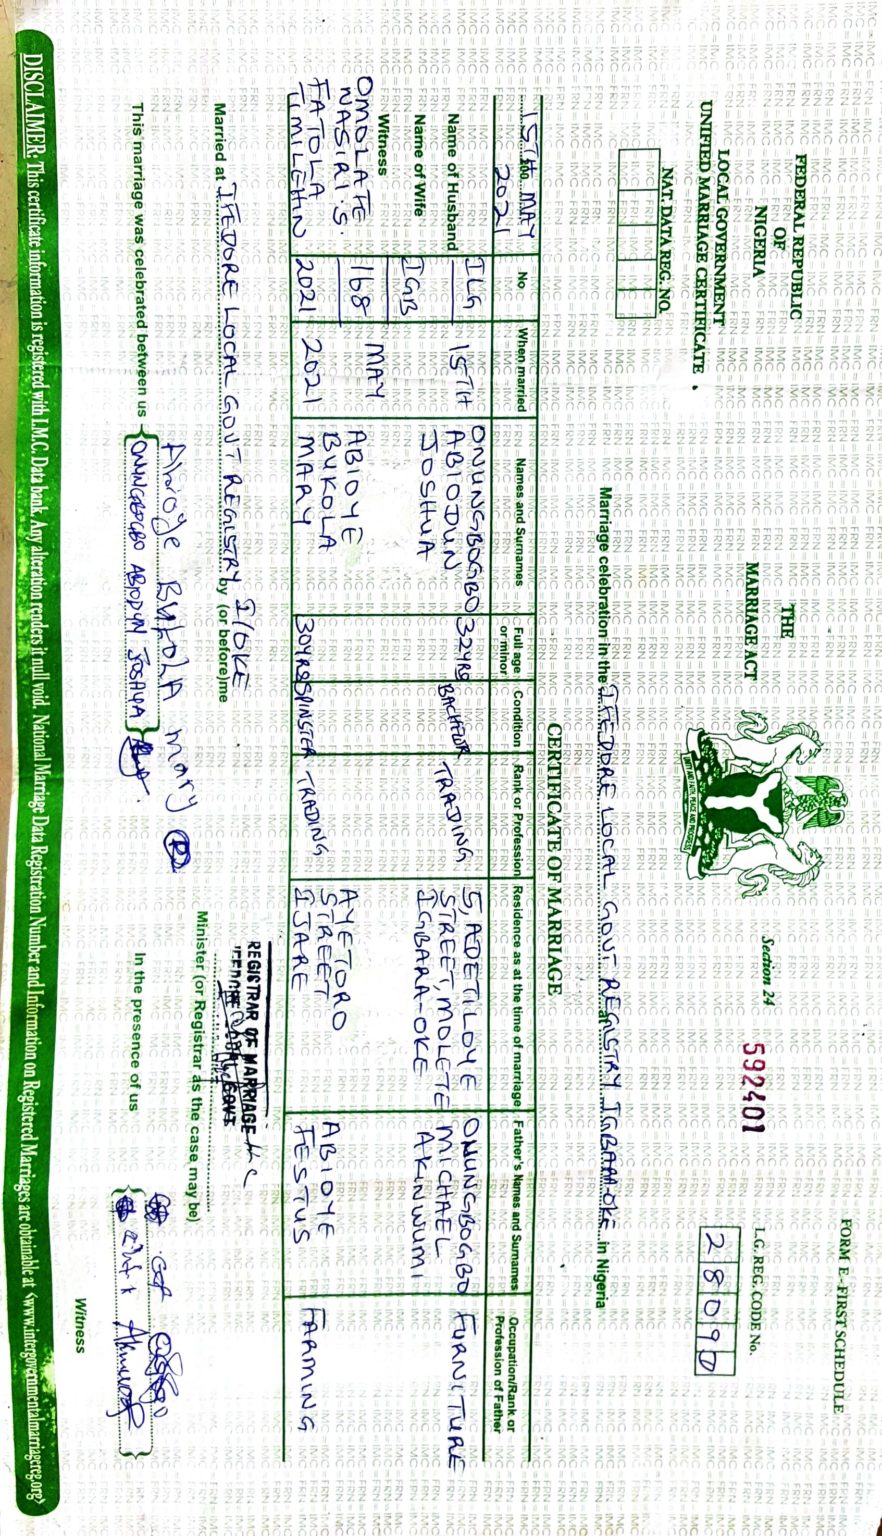 FEDERAL REPUBLIC
OF
NIGERIA
LOCAL GOVERNMENT
UNIFIED MARRIAGE CERTIFICATE
NAT. DATA REG. NO.
THE
MARRIAGE ACT
UNITY AND FAITH, PEACE AND PROGRESS
Section 24
592401
FORM E - FIRST SCHEDULE
L.G. REG. CODE No.
28090
Marriage celebration in the IFEDORE LOCAL GOVT REGISTRY IGBARA-OKE in Nigeria
CERTIFICATE OF MARRIAGE
15TH MAY
2021
No
When married
Names and Surnames
Full age or minor
Condition
Rank or Profession
Residence as at the time of marriage
Father's Names and Surnames
Occupation/Rank or Profession of Father
Name of Husband
ILG
15TH
ONUNGBOGBO ABIODUN JOSHUA
32YRS
BACHELOR
TRADING
5, ADETILOYE STREET, MOLETE IGBARA-OKE
ONUNGBOGBO MICHAEL AKINWUMI
FURNITURE
Name of Wife
IGB
Witness
OMOLAFE NASIRI.S.
168
MAY
FATOLA
2021
2021
ABIOYE BUKOLA MARY
30YRS
SPINSTER
TRADING
AYETORO STREET IJARE
ABIOYE FESTUS
FARMING
Married at IFEDORE LOCAL GOVT REGISTRY I/OKE
by (or before) me
REGISTRAR OF MARRIAGE
Minister (or Registrar as the case may be)
This marriage was celebrated between us
Abioye Bukola mary
ONUNGBOGBO ABIODUN JOSHUA
In the presence of us
Witness
DISCLAIMER: This certificate information is registered with I.M.C. Data bank. Any alteration renders it null void. National Marriage Data Registration Number and Information on Registered Marriages are obtainable at <www.intergovernmentalmarriagereg.org>